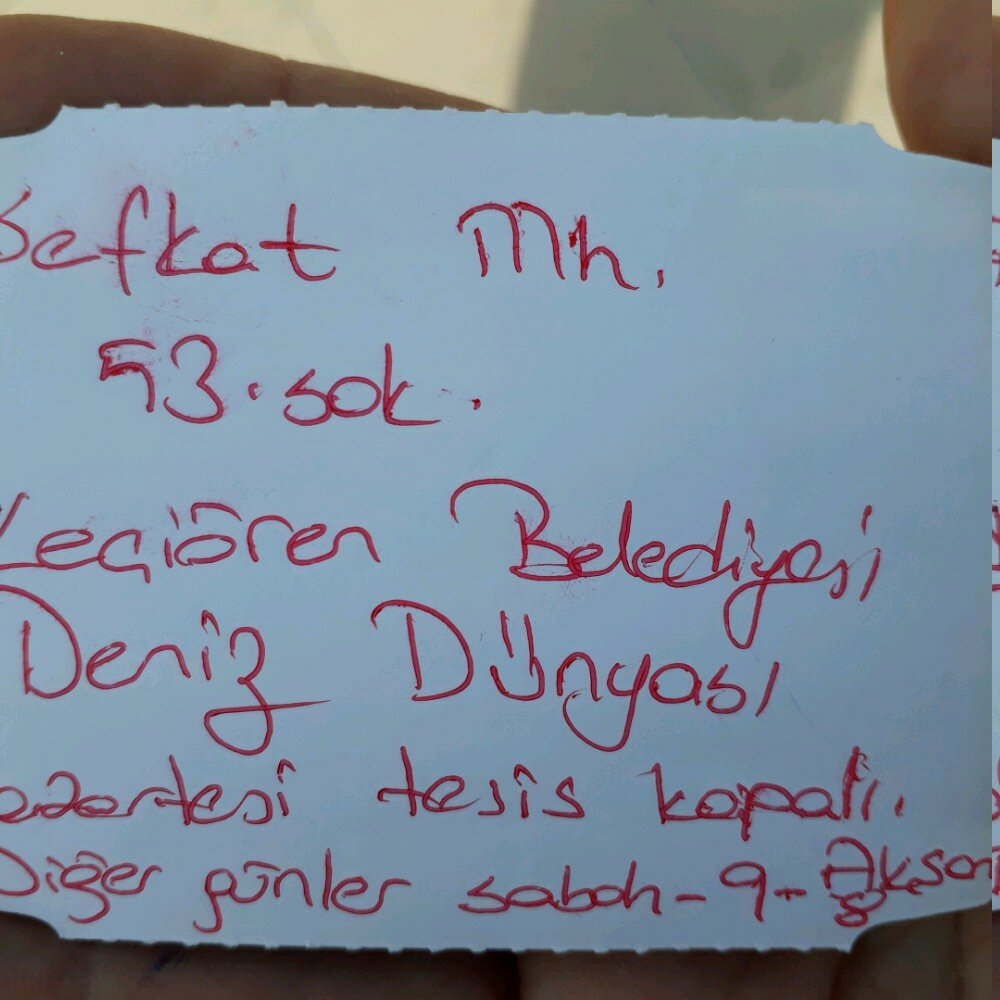 Şefkat Mh.
53. sok.
Keçiören Belediyesi
Deniz Dünyası
azartesi tesis kapalı.
Diğer günler sabah - 9 - Akşam
8